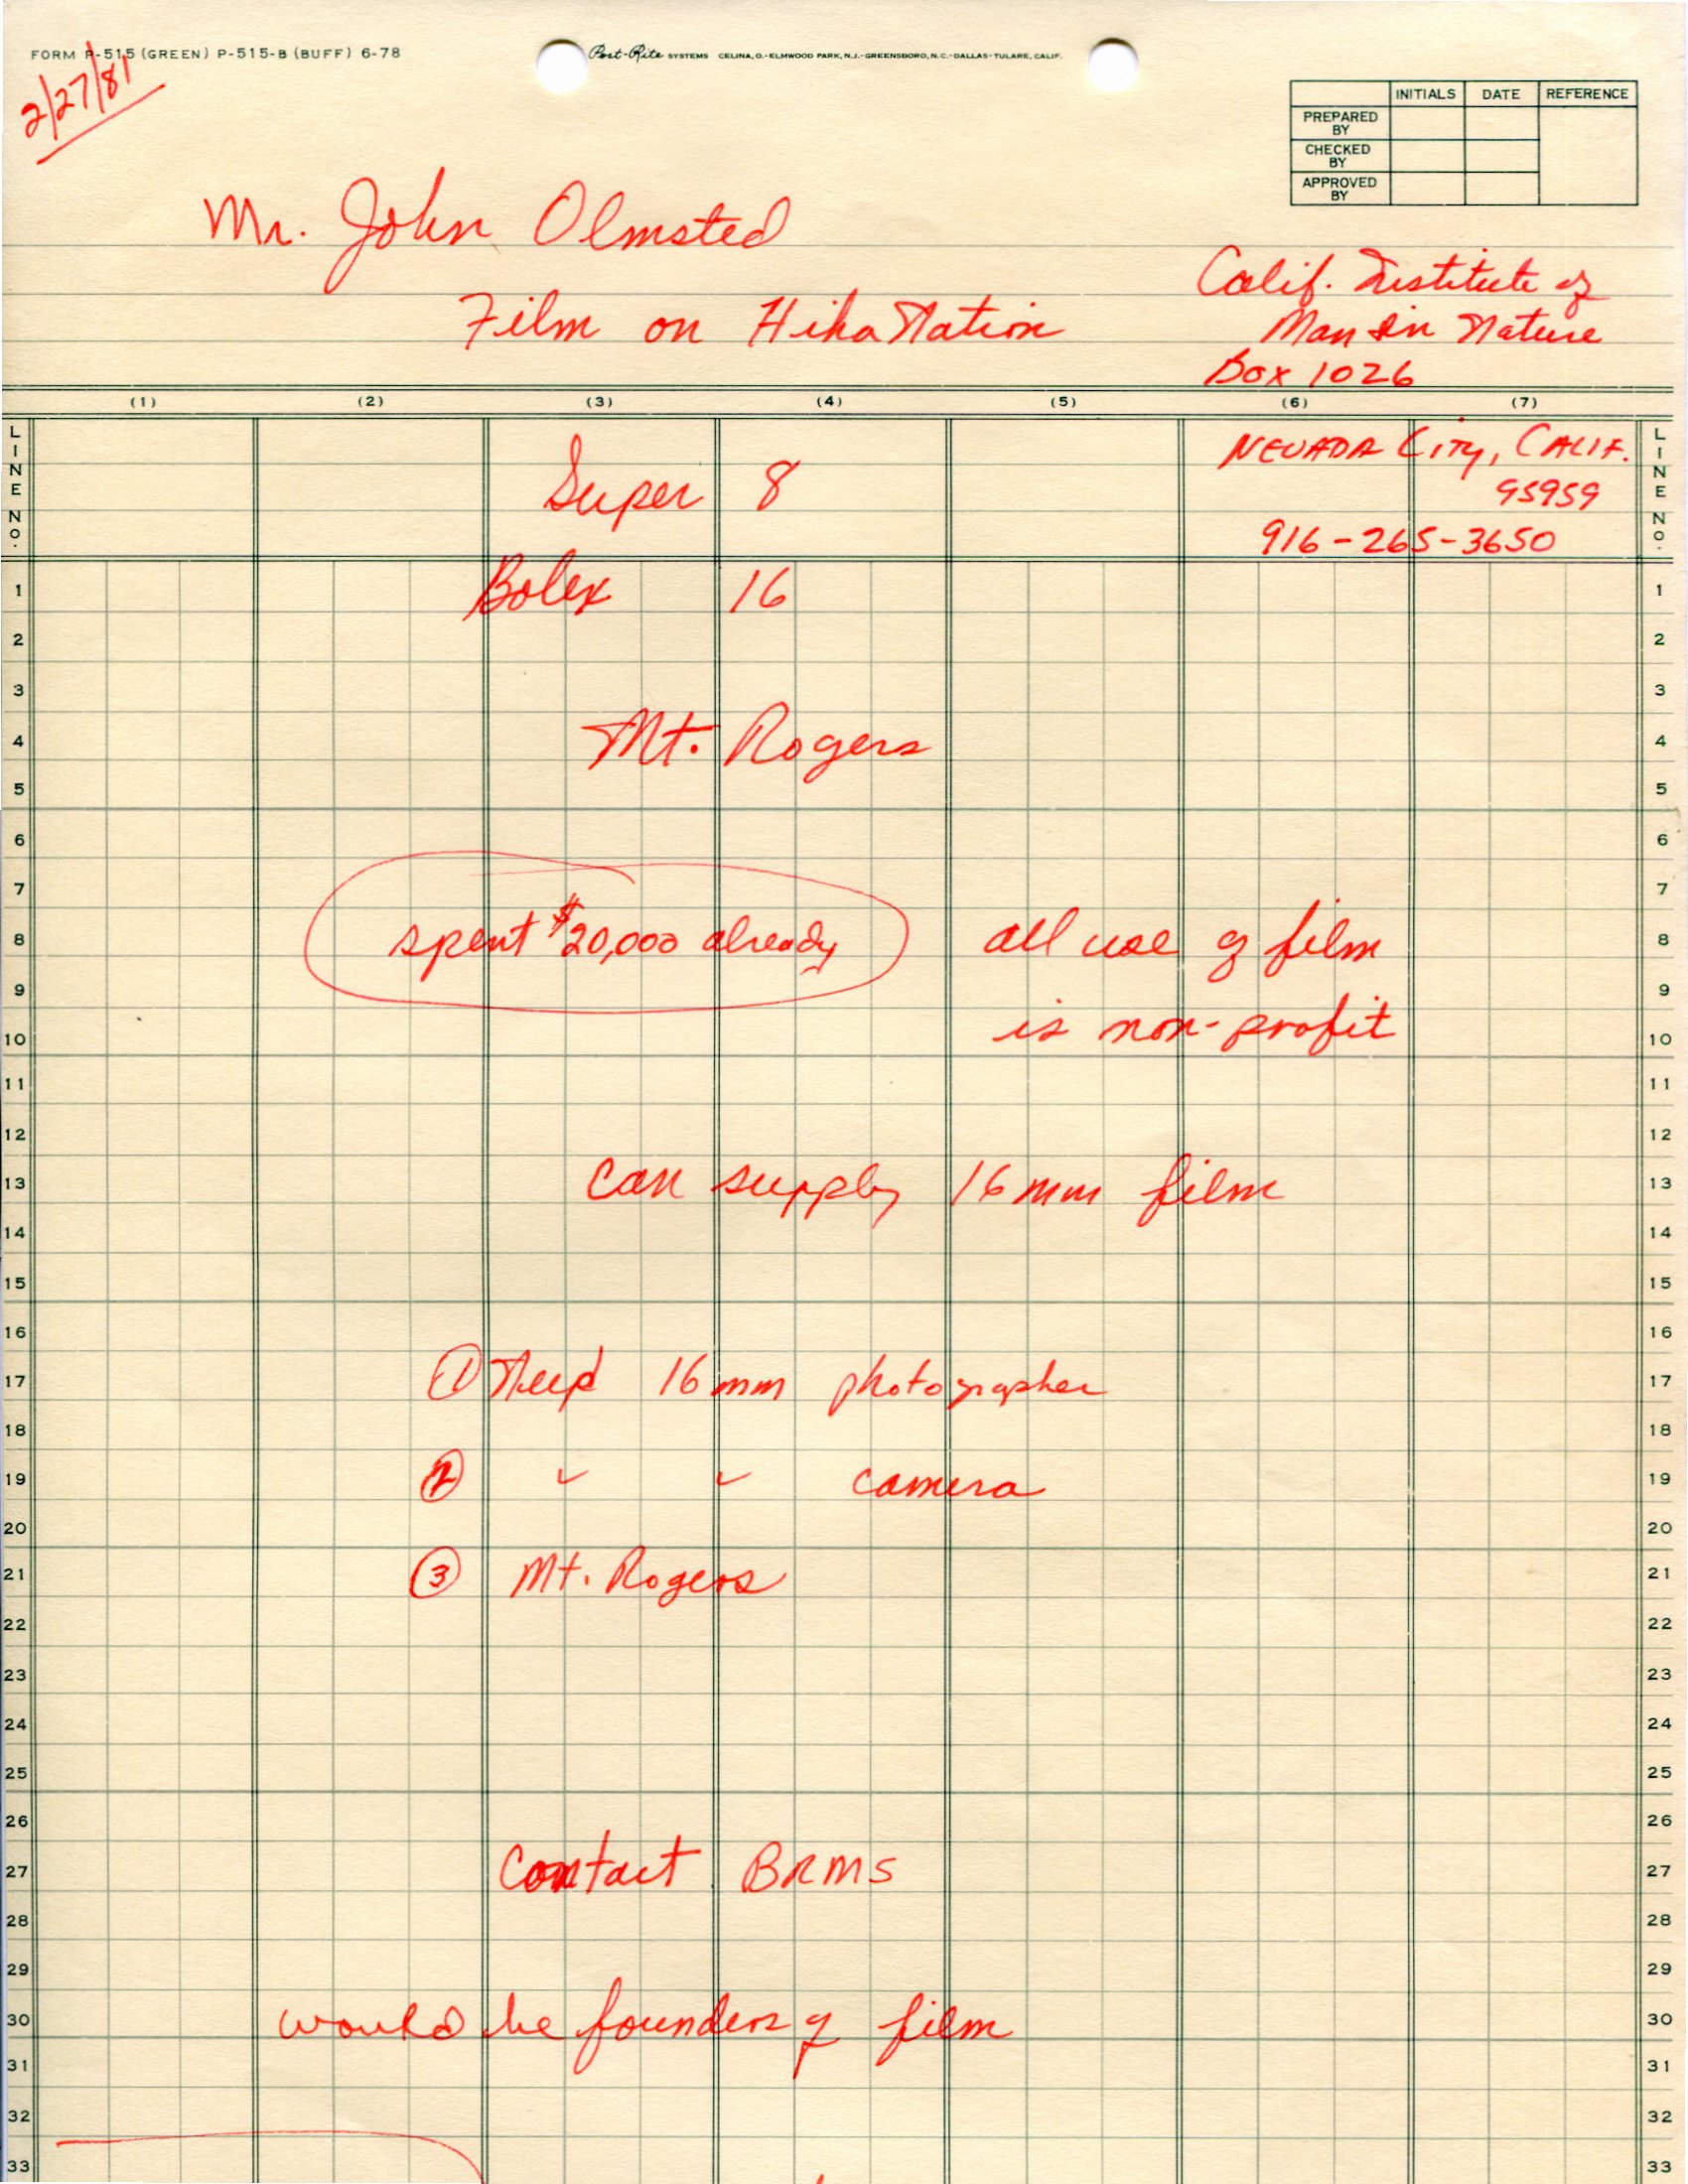 FORM P-515 (GREEN) P-515-B (BUFF) 6-78
Post-Rite SYSTEMS CELINA, O.-ELMWOOD PARK, N.J.-GREENSBORO, N.C.-DALLAS-TULARE, CALIF.
2/27/81
INITIALS DATE REFERENCE
PREPARED BY
CHECKED BY
APPROVED BY
Mr. John Olmsted
Film on HikaNation
Calif. Institute of
Man In Nature
Box 1026
(1) (2) (3) (4) (5) (6) (7)
LINE NO. LINE NO.
NEVADA City, CALIF.
95959
916-265-3650
Super 8
1 Bolex 16 1
2 2
3 3
4 Mt. Rogers 4
5 5
6 6
7 7
8 spent $20,000 already all use of film 8
9 9
10 is non-profit 10
11 11
12 12
13 can supply 16 mm film 13
14 14
15 15
16 16
17 ① Need 16 mm photographer 17
18 18
19 ② " " camera 19
20 20
21 ③ Mt. Rogers 21
22 22
23 23
24 24
25 25
26 26
27 Contact BRMS 27
28 28
29 29
30 would be founders of film 30
31 31
32 32
33 33